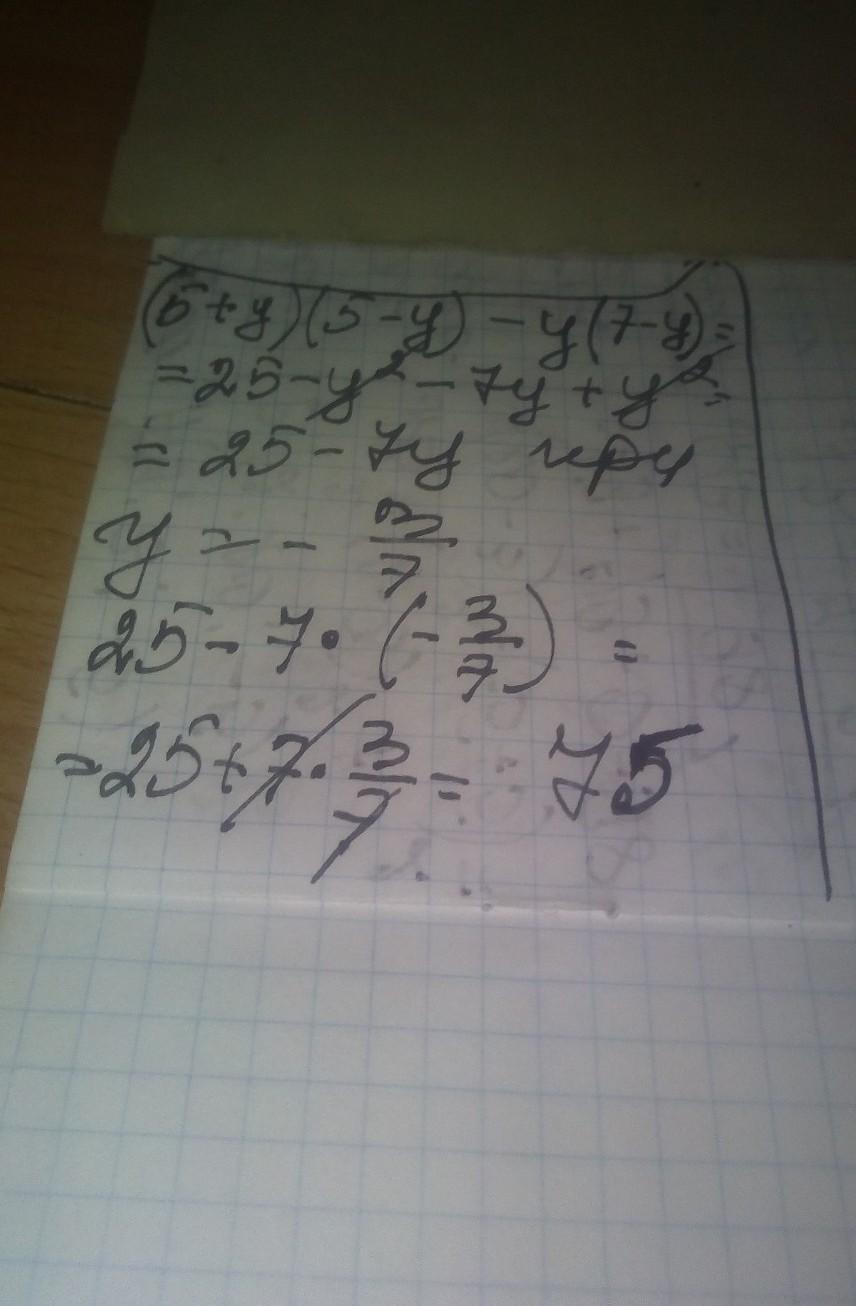 (5+y)(5-y) - y(7-y) =
= 25 - y² - 7y + y² =
= 25 - 7y при
y = - 3/7
25 - 7 · (- 3/7) =
= 25 + 7 · 3/7 = 75